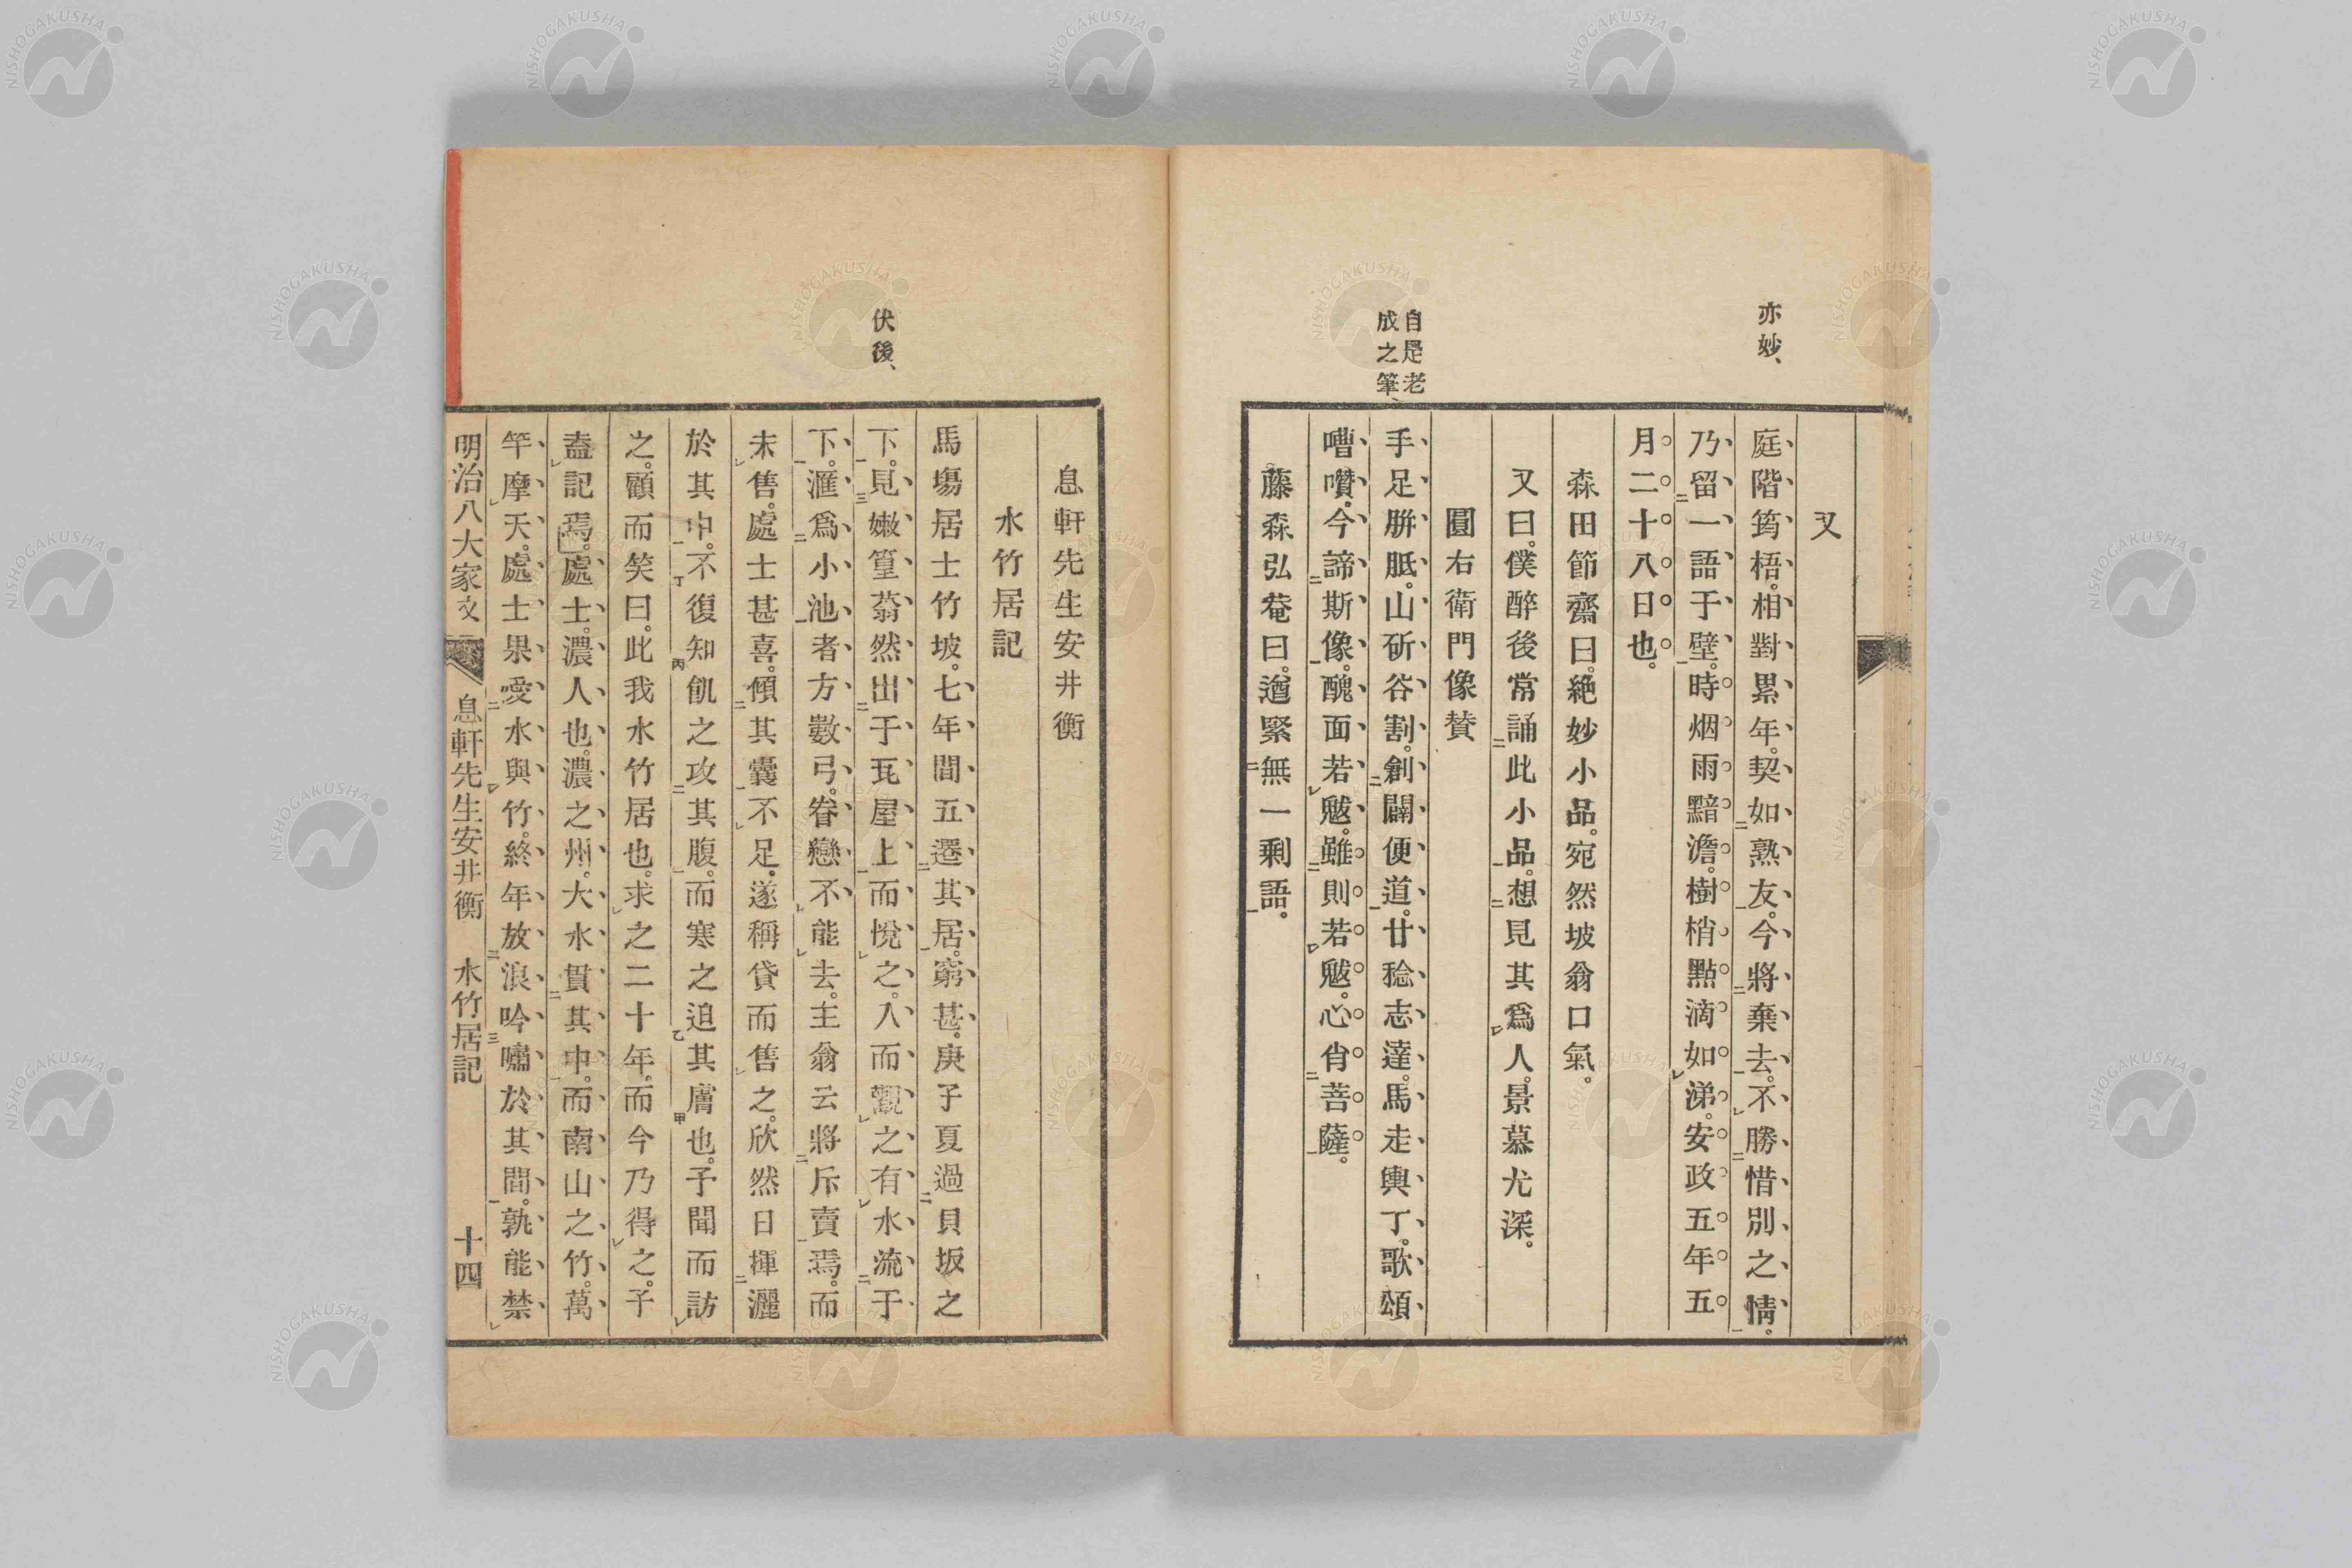 亦妙、
又
庭階筠梧。相對累年。契如熟友。今將棄去。不勝惜別之情。
乃留一語于壁。時烟雨黯澹。樹梢點滴如涕。安政五年五
月二十八日也。
森田節齋曰。絕妙小品。宛然坡翁口氣。
又曰。僕醉後常誦此小品。想見其爲人。景慕尤深。
圓右衛門像賛
自是老
成之筆、
手足胼胝。山斫谷割。創闢便道。廿稔志達。馬走輿丁。歌頌
嘈囋。今諦斯像。醜面若魃。雖則若魃。心肖菩薩。
藤森弘菴曰。遒緊無一剩語。
息軒先生安井衡
水竹居記
馬塲居士竹坡。七年間五遷其居。窮甚。庚子夏過貝坂之
伏後、
下。見嫩篁蓊然出于瓦屋上而悅之。入而觀之。有水流于
下。滙爲小池者方數弓。眷戀不能去。主翁云將斥賣焉。而
未售。處士甚喜。傾其囊不足。遂稱貸而售之。欣然日揮灑
於其中。不復知飢之攻其腹。而寒之迫其膚也。予聞而訪
之。顧而笑曰。此我水竹居也。求之二十年。而今乃得之。子
盍記焉。處士。濃人也。濃之州。大水貫其中。而南山之竹。萬
竿摩天。處士果愛水與竹。終年放浪吟嘯於其間。孰能禁
明治八大家文 息軒先生安井衡 水竹居記 十四
NISHOGAKUSHA